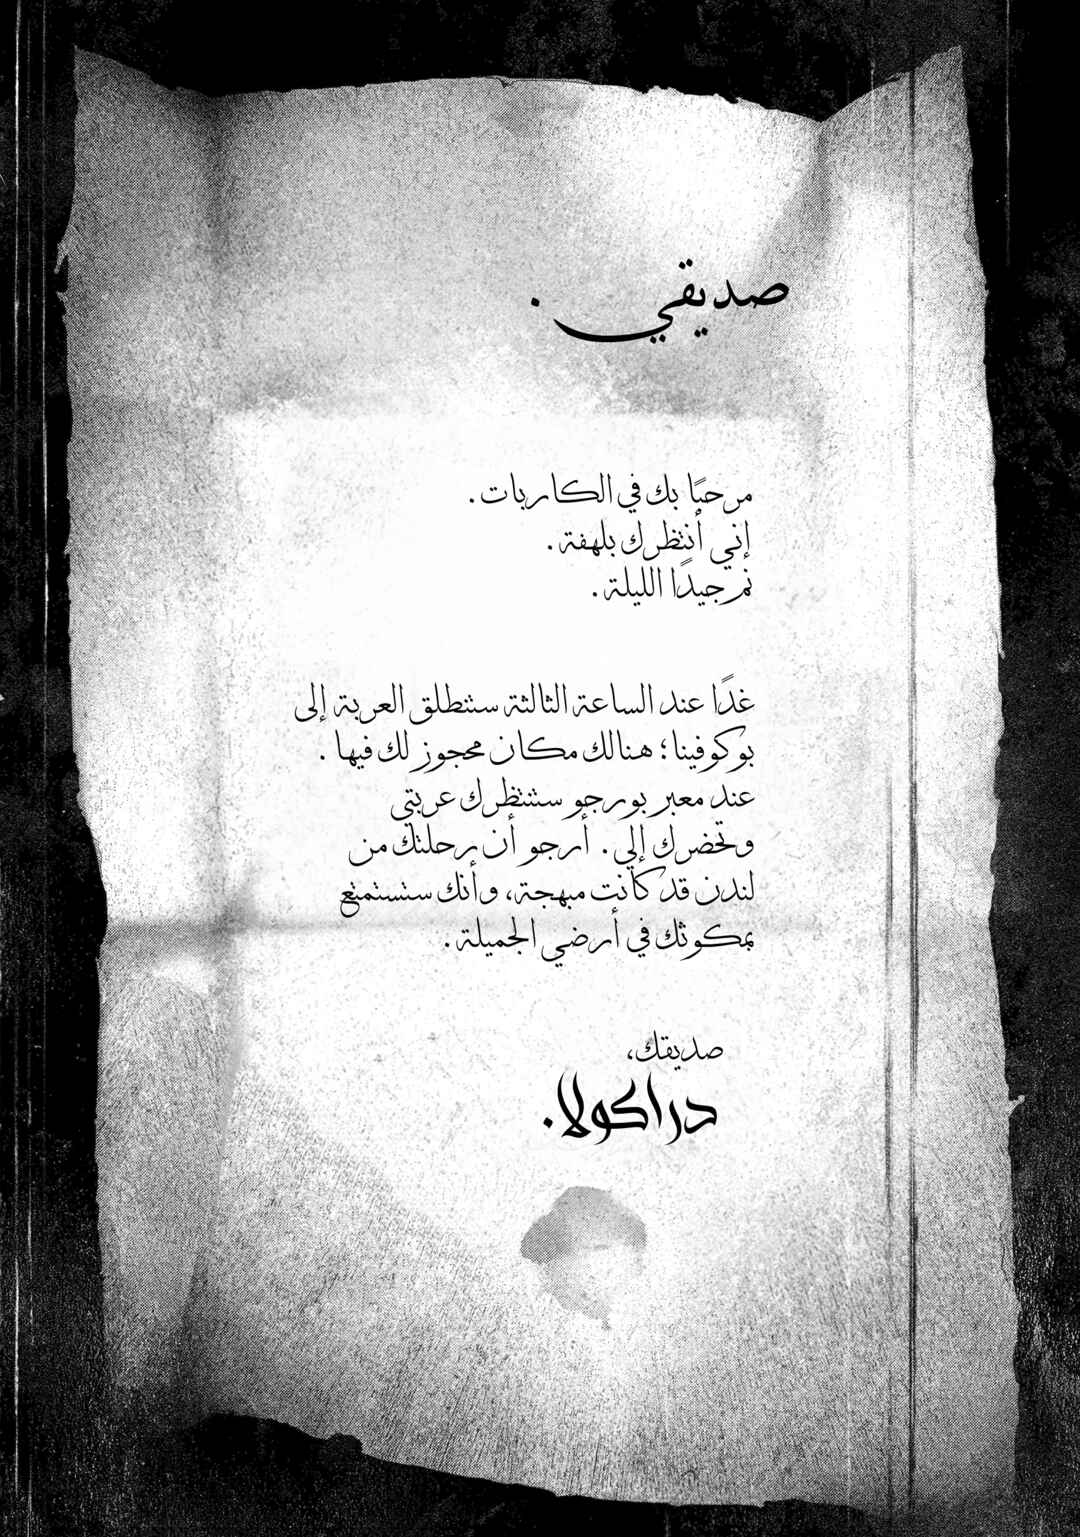 صديقي.
مرحبًا بك في الكاربات.
إني أنتظرك بلهفة.
نم جيدًا الليلة.
غدًا عند الساعة الثالثة ستنطلق العربة إلى
بوكوفينا؛ هنالك مكان محجوز لك فيها.
عند معبر بورجو ستنتظرك عربتي
وتحضرك إلي. أرجو أن رحلتك من
لندن قد كانت مبهجة، وأنك ستستمتع
بمكوثك في أرضي الجميلة.
صديقك،
دراكولا.